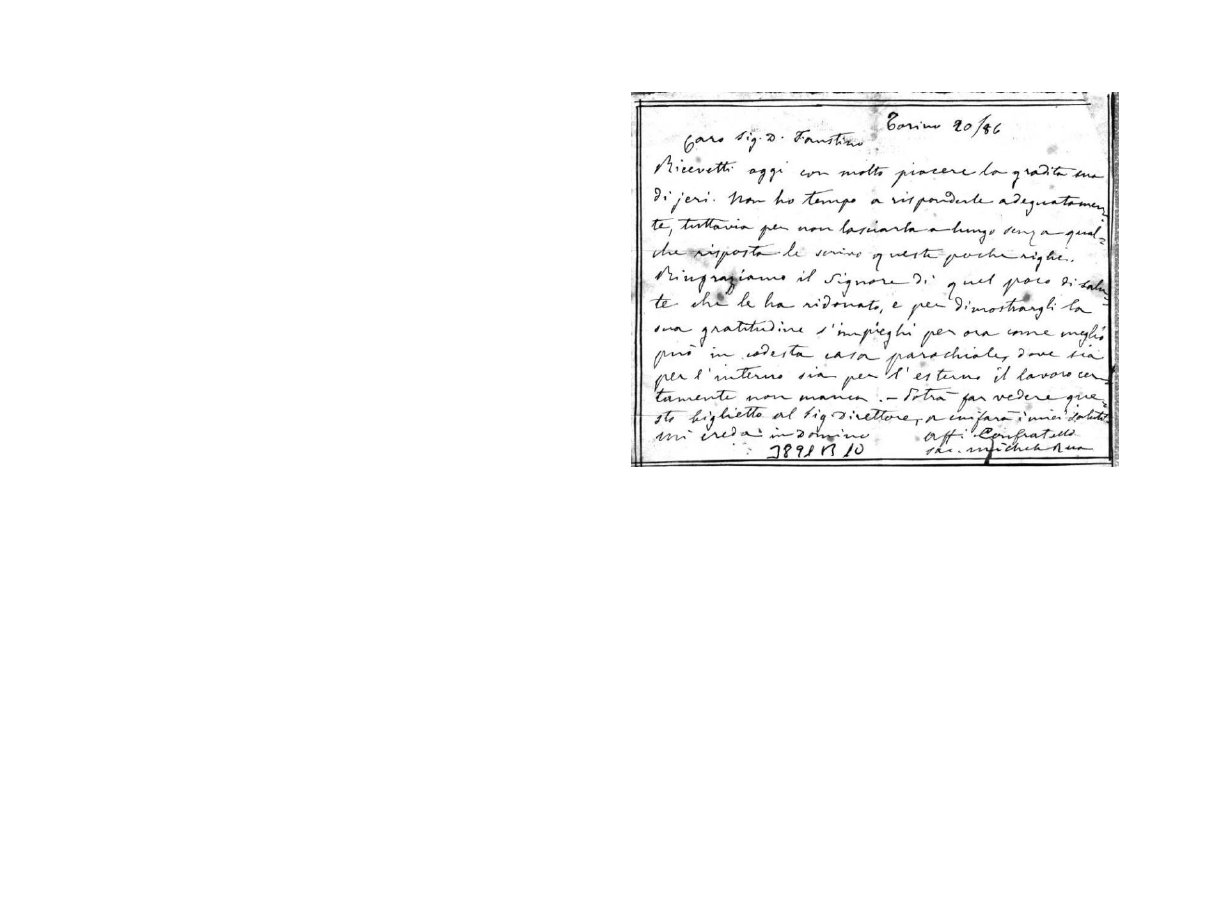 Torino 20/86
Caro Sig. D. Faustino
Ricevetti oggi con molto piacere la gradita sua
di jeri. Non ho tempo a risponderle adeguatamen-
te, tuttavia per non lasciarla a lungo senza qual-
che risposta le scrivo queste poche righe.
Ringraziamo il Signore di quel poco di salu-
te che le ha ridonato, e per dimostrargli la
sua gratitudine s'impieghi per ora come meglio
può in codesta casa parochiale, dove sia
per l'interno sia per l'esterno il lavoro cer-
tamente non manca. - Potrà far vedere que-
sto biglietto al Sig. Direttore, a cui farà i miei saluti
mi creda in Domino
aff. Confratello
3891 B 10
sac. Michele Rua